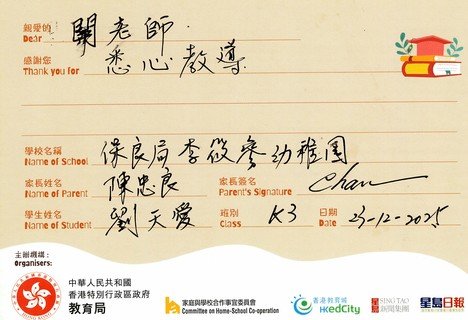 親愛的
Dear 關老師
感謝您
Thank you for 悉心教導
學校名稱
Name of School 保良局李筱參幼稚園
家長姓名 陳忠良 家長簽名
Name of Parent Parent's Signature Chan
學生姓名 劉天愛 班別 K3 日期 23-12-2025
Name of Student Class Date
主辦機構：
Organisers:
中華人民共和國
香港特別行政區政府
教育局
家庭與學校合作事宜委員會
Committee on Home-School Co-operation
香港教育城
HKedCity
星島 SING TAO
新聞集團
星島日報